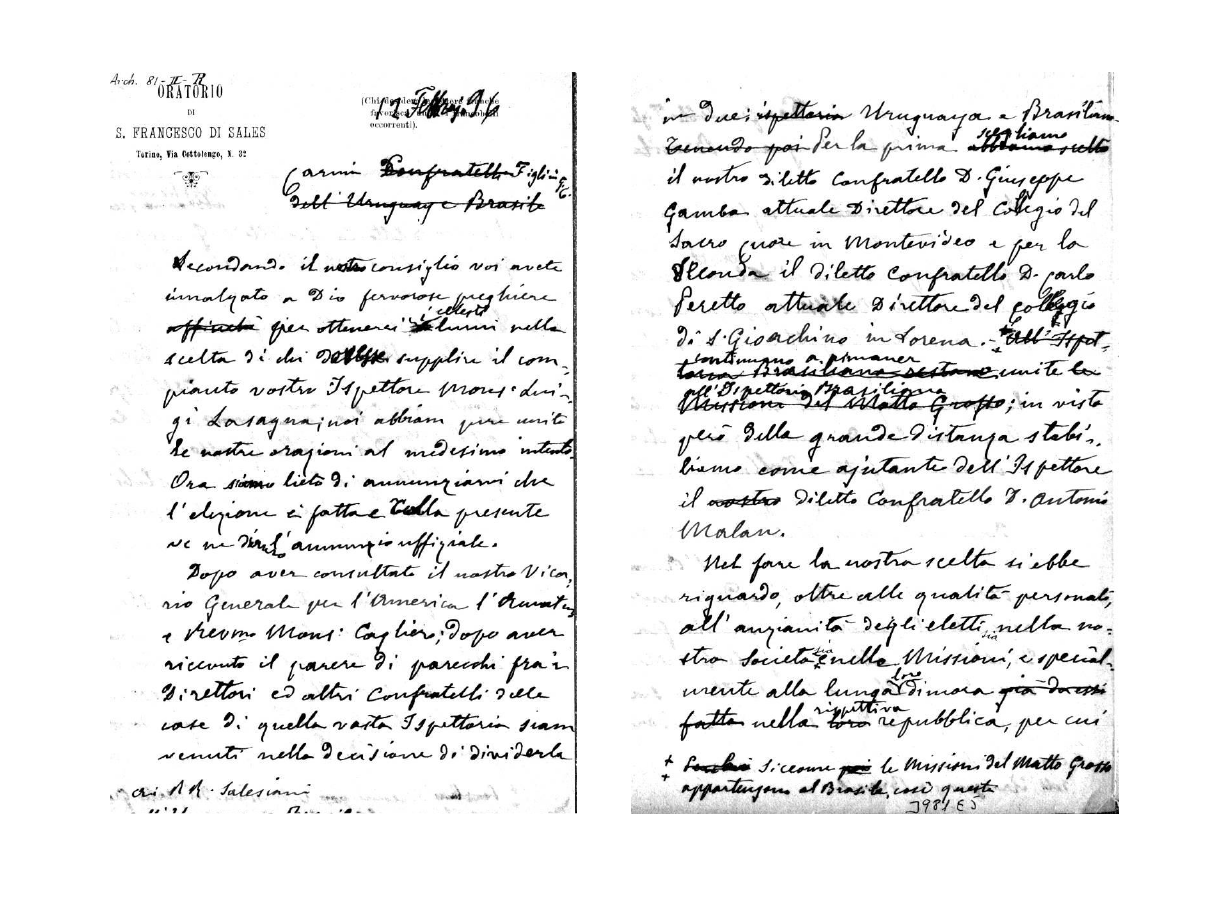 Arch. 81-II-R
ORATORIO
DI
S. FRANCESCO DI SALES
Torino, Via Cottolengo, N. 32
occorrenti).
Febbr. 96
Carmi Confratelli Figli in G. C.
dell'Uruguay e Brasile
Secondando il nostro consiglio voi avete
innalzato a Dio fervorose preghiere
affinchè per ottenerci i celesti lumi nella
scelta di chi supplire il com-
pianto vostro Ispettore Mons. Lui-
gi Lasagna; noi abbiam pure unite
le nostre orazioni al medesimo intento.
Ora siamo lieto di annunziarvi che
l'elezione è fatta e colla presente
ve ne l'annunzio uffiziale.
Dopo aver consultato il nostro Vica-
rio Generale per l'America l'
e Revmo Mons. Cagliero; dopo aver
ricevuto il parere di parecchi fra i
Direttori ed altri Confratelli delle
case di quella vasta Ispettoria siam
venuti nella decisione di dividerla
Ai RR. Salesiani
in due ispettoria Uruguaya e Brasiliana
Venendo poi Per la prima scegliamo
abbiamo scelto
il nostro diletto Confratello D. Giuseppe
Gamba attuale Direttore del Collegio del
Sacro Cuore in Montevideo e per la
Seconda il diletto Confratello D. Carlo
Peretto attuale Direttore del Collegio
di S. Gioachino in Lorena. All'Ispet-
continuano a rimaner
toria Brasiliana restano unite le
all'Ispettoria Brasiliana
Missioni del Matto Grosso; in vista
però della grande distanza stabi-
liamo come ajutante dell'Ispettore
il nostro diletto Confratello D. Antonio
Malan.
Nel fare la nostra scelta si ebbe
riguardo, oltre alle qualità personali,
all'anzianità degli eletti sia nella no-
stra Società sia nelle Missioni, e special-
mente alla lunga loro dimora già da essi
fatta nella loro rispettiva repubblica, per cui
+ Siccome poi le Missioni del Matto Grosso
+ appartengono al Brasile, così queste